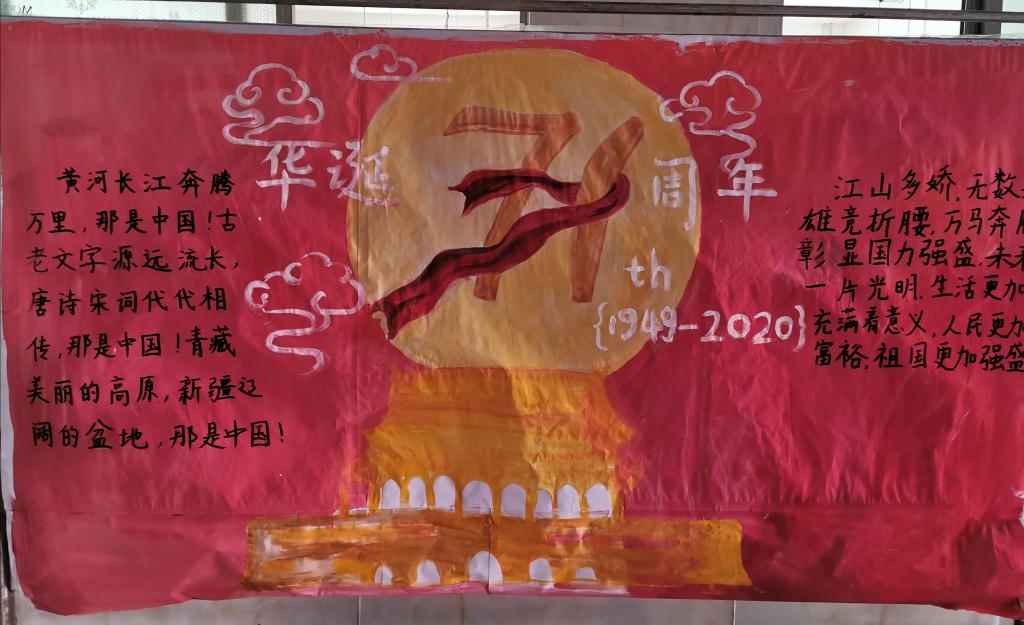 华诞
71
周年
th
{1949-2020}
黄河长江奔腾
万里，那是中国！古
老文字源远流长，
唐诗宋词代代相
传，那是中国！青藏
美丽的高原，新疆辽
阔的盆地，那是中国！
江山多娇，无数
雄竞折腰，万马奔
彰显国力强盛，未来
一片光明，生活更加
充满着意义，人民更加
富裕，祖国更加强盛